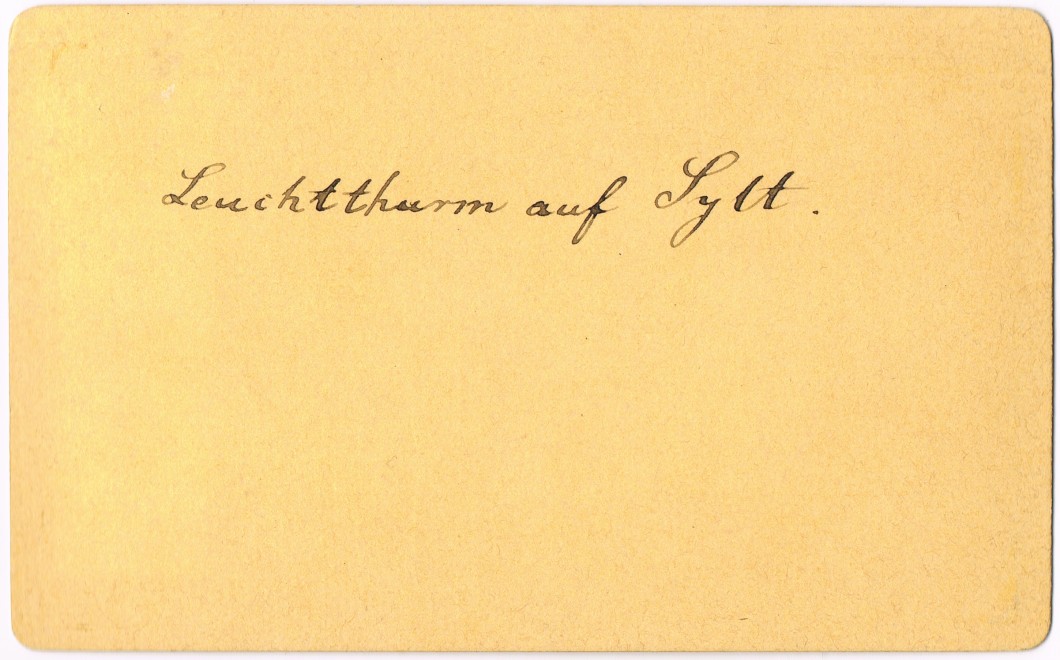 Leuchtthurm auf Sylt.